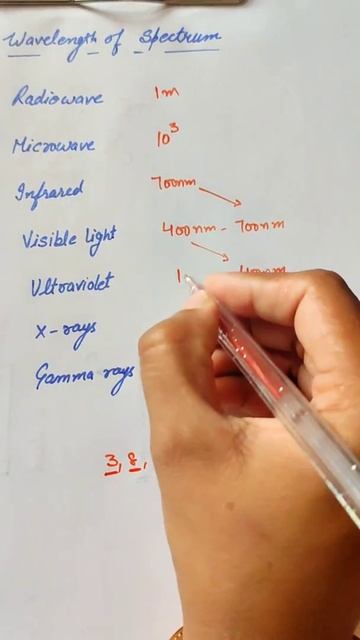 Wavelength of Spectrum
Radiowave 1m
Microwave 10³
Infrared 700nm
Visible light 400nm - 700nm
Ultraviolet 1 400nm
X-rays
Gamma rays
3, 8,